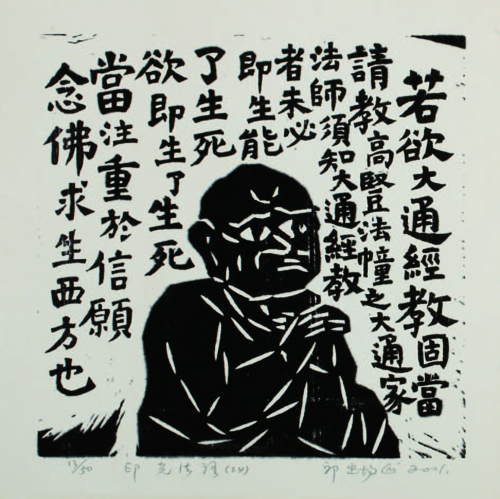 若欲大通經教固當
請教高豎法幢之大通家
法師須知大通經教
者未必
即生能
了生死
欲即生了生死
當注重於信願
念佛求生西方也
印光法語(24)
2001.